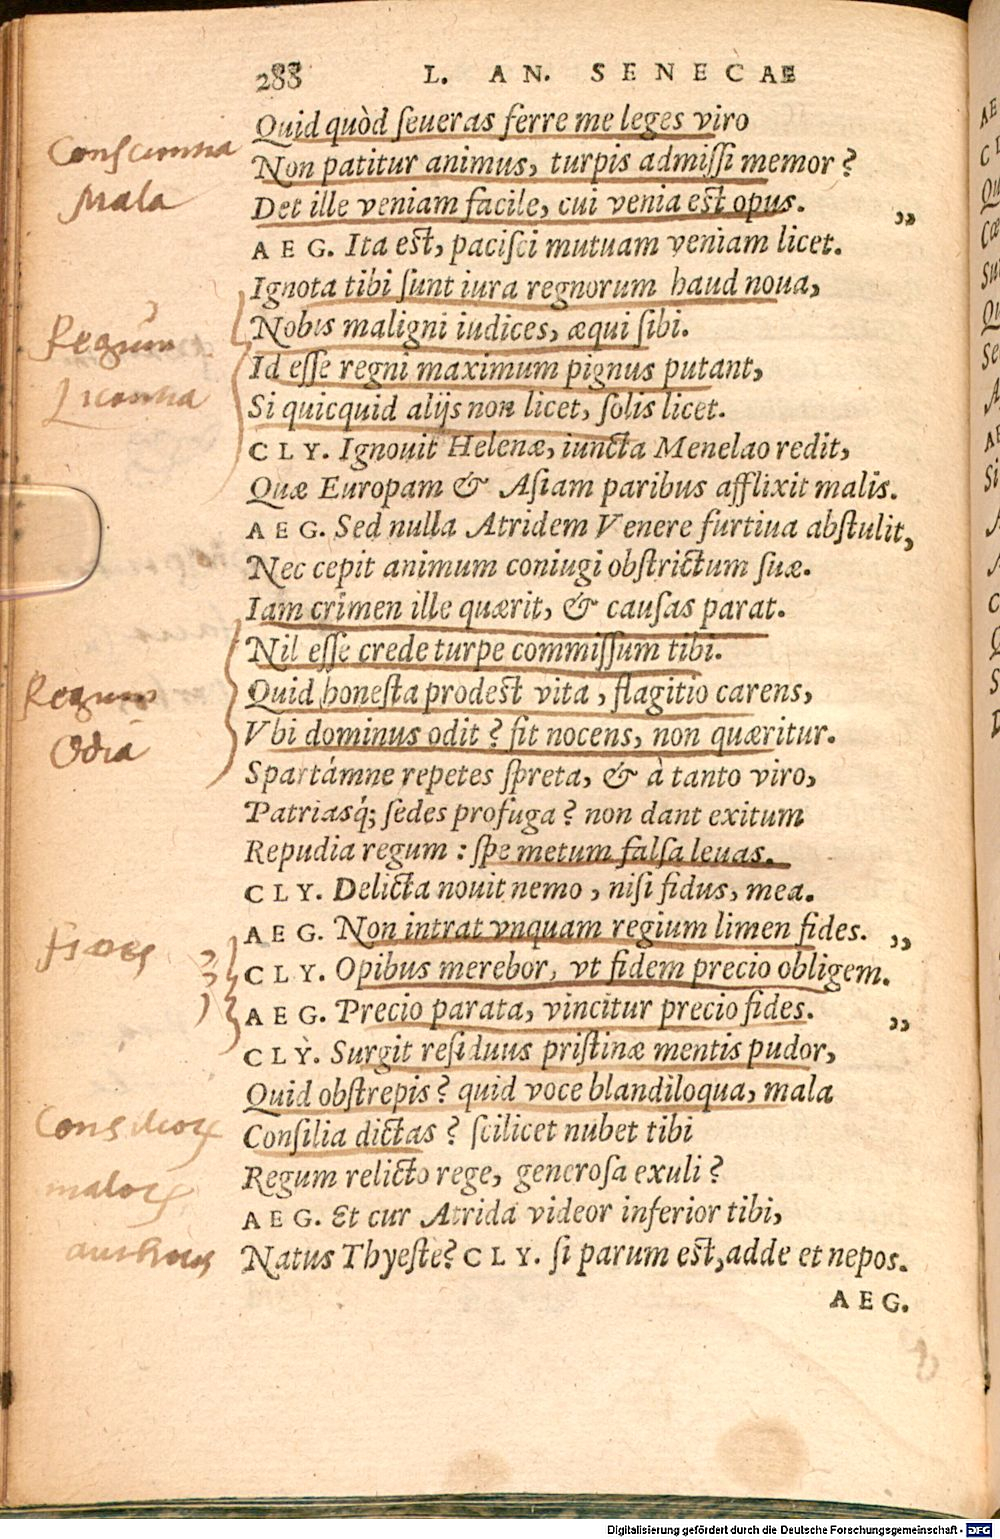 288 L. AN. SENECAE
Quid quòd ſeueras ferre me leges viro
Conscientia
Non patitur animus, turpis admiſſi memor?
Mala
Det ille veniam facile, cui venia eſt opus. „
AEG. Ita eſt, paciſci mutuam veniam licet.
Ignota tibi ſunt iura regnorum haud noua,
Regum
Nobis maligni iudices, æqui ſibi.
Id eſſe regni maximum pignus putant,
Licentia
Si quicquid alijs non licet, ſolis licet.
CLY. Ignouit Helenæ, iuncta Menelao redit,
Quæ Europam & Aſiam paribus afflixit malis.
AEG. Sed nulla Atridem Venere furtiua abſtulit,
Nec cepit animum coniugi obſtrictum ſuæ.
Iam crimen ille quærit, & cauſas parat.
Nil eſſe crede turpe commiſſum tibi.
Regum
Quid honeſta prodeſt vita, flagitio carens,
Odia
Vbi dominus odit? ſit nocens, non quæritur.
Spartámne repetes ſpreta, & à tanto viro,
Patriasq́; ſedes profuga? non dant exitum
Repudia regum: ſpe metum falſa leuas.
CLY. Delicta nouit nemo, niſi fidus, mea.
AEG. Non intrat vnquam regium limen fides. „
Fides
CLY. Opibus merebor, vt fidem precio obligem.
AEG. Precio parata, vincitur precio fides. „
CLY. Surgit reſiduus priſtinæ mentis pudor,
Quid obſtrepis? quid voce blandiloqua, mala
Consilioꝝ
Conſilia dictas? ſcilicet nubet tibi
maloꝝ
Regum relicto rege, generoſa exuli?
AEG. Et cur Atrida videor inferior tibi,
Natus Thyeſte? CLY. ſi parum eſt, adde et nepos.
AEG.
Digitalisierung gefördert durch die Deutsche Forschungsgemeinschaft - DFG